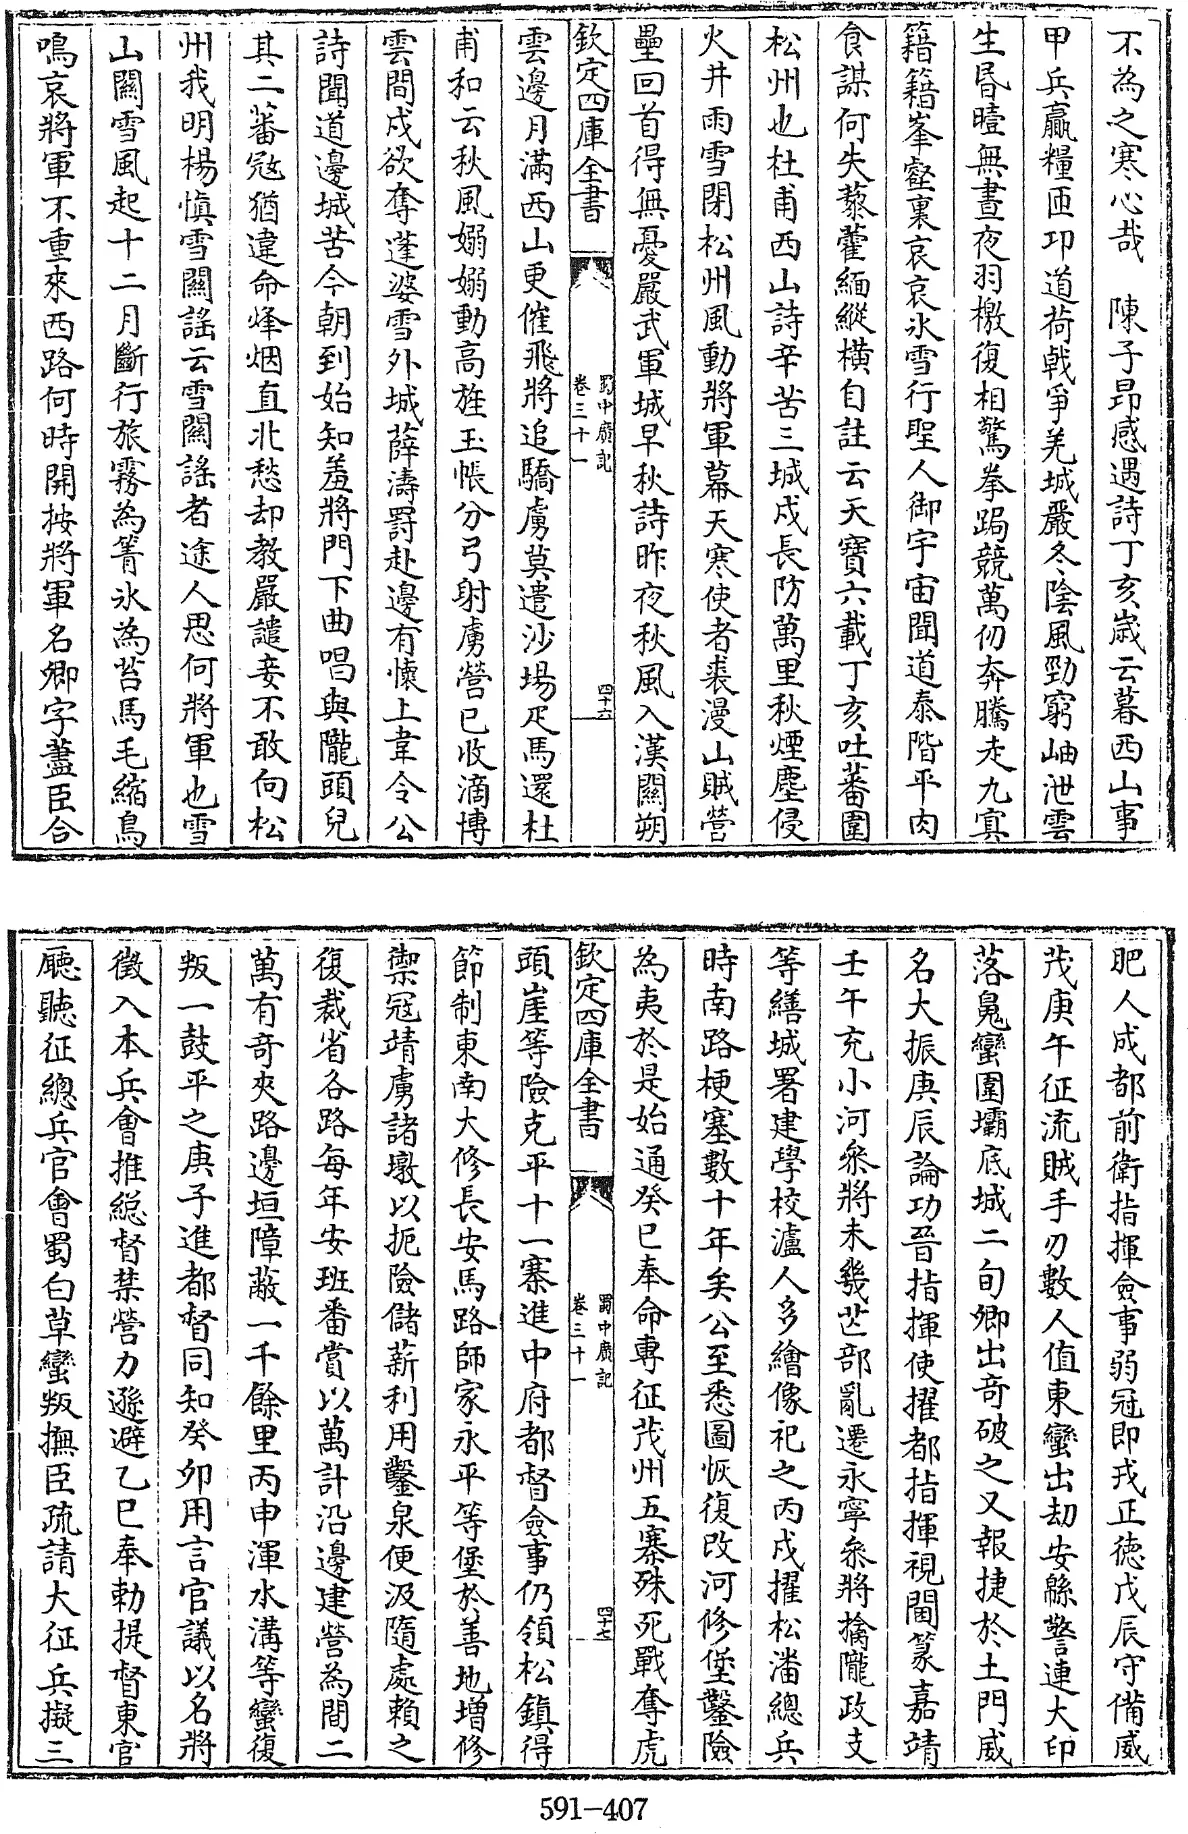 不為之寒心哉　陳子昂感遇詩丁亥歲云暮西山事
甲兵贏糧匝邛道荷戟爭羌城嚴冬陰風勁窮岫泄雲
生昏曀無晝夜羽檄復相驚拳跼競萬仞奔騰走九冥
籍籍峯壑裏哀哀氷雪行聖人御宇宙聞道泰階平肉
食謀何失藜藿緬縱橫自註云天寶六載丁亥吐蕃圍
松州也杜甫西山詩辛苦三城戍長防萬里秋煙塵侵
火井雨雪閉松州風動將軍幕天寒使者裘漫山賊營
壘回首得無憂嚴武軍城早秋詩昨夜秋風入漢關朔
欽定四庫全書
蜀中廣記
卷三十一
四十六
雲邊月滿西山更催飛將追驕虜莫遣沙場疋馬還杜
甫和云秋風嫋嫋動高旌玉帳分弓射虜營已收滴博
雲間戍欲奪蓬婆雪外城薛濤罸赴邊有懐上韋令公
詩聞道邊城苦今朝到始知羞將門下曲唱與隴頭兒
其二蕃冦猶違命烽烟直北愁却教嚴譴妾不敢向松
州我明楊慎雪關謠云雪關謠者途人思何將軍也雪
山關雪風起十二月斷行旅霧為箐氷為苔馬毛縮鳥
鳴哀將軍不重來西路何時開按將軍名卿字藎臣合
肥人成都前衛指揮僉事弱冠即戎正徳戊辰守備威
茂庚午征流賊手刃數人值東蠻出刼安縣警連大印
落鬼蠻圍壩底城二旬卿出奇破之又報捷於土門威
名大振庚辰論功晉指揮使擢都指揮視閫篆嘉靖
壬午充小河叅將未幾芒部亂遷永寧叅將擒隴政支
等繕城署建學校瀘人多繪像祀之丙戌擢松潘總兵
時南路梗塞數十年矣公至悉圖恢復改河修堡鑿險
為夷於是始通癸巳奉命專征茂州五寨殊死戰奪虎
欽定四庫全書
蜀中廣記
卷三十一
四十七
頭崖等險克平十一寨進中府都督僉事仍領松鎮得
節制東南大修長安馬路師家永平等堡於善地增修
禦冦靖虜諸墩以扼險儲薪利用鑿泉便汲隨處賴之
復裁省各路每年安班番賞以萬計沿邊建營為間二
萬有奇夾路邊垣障蔽一千餘里丙申渾水溝等蠻復
叛一鼓平之庚子進都督同知癸卯用言官議以名將
徵入本兵會推総督禁營力遜避乙巳奉勅提督東官
廳聽征總兵官會蜀白草蠻叛撫臣疏請大征兵擬三
591-407